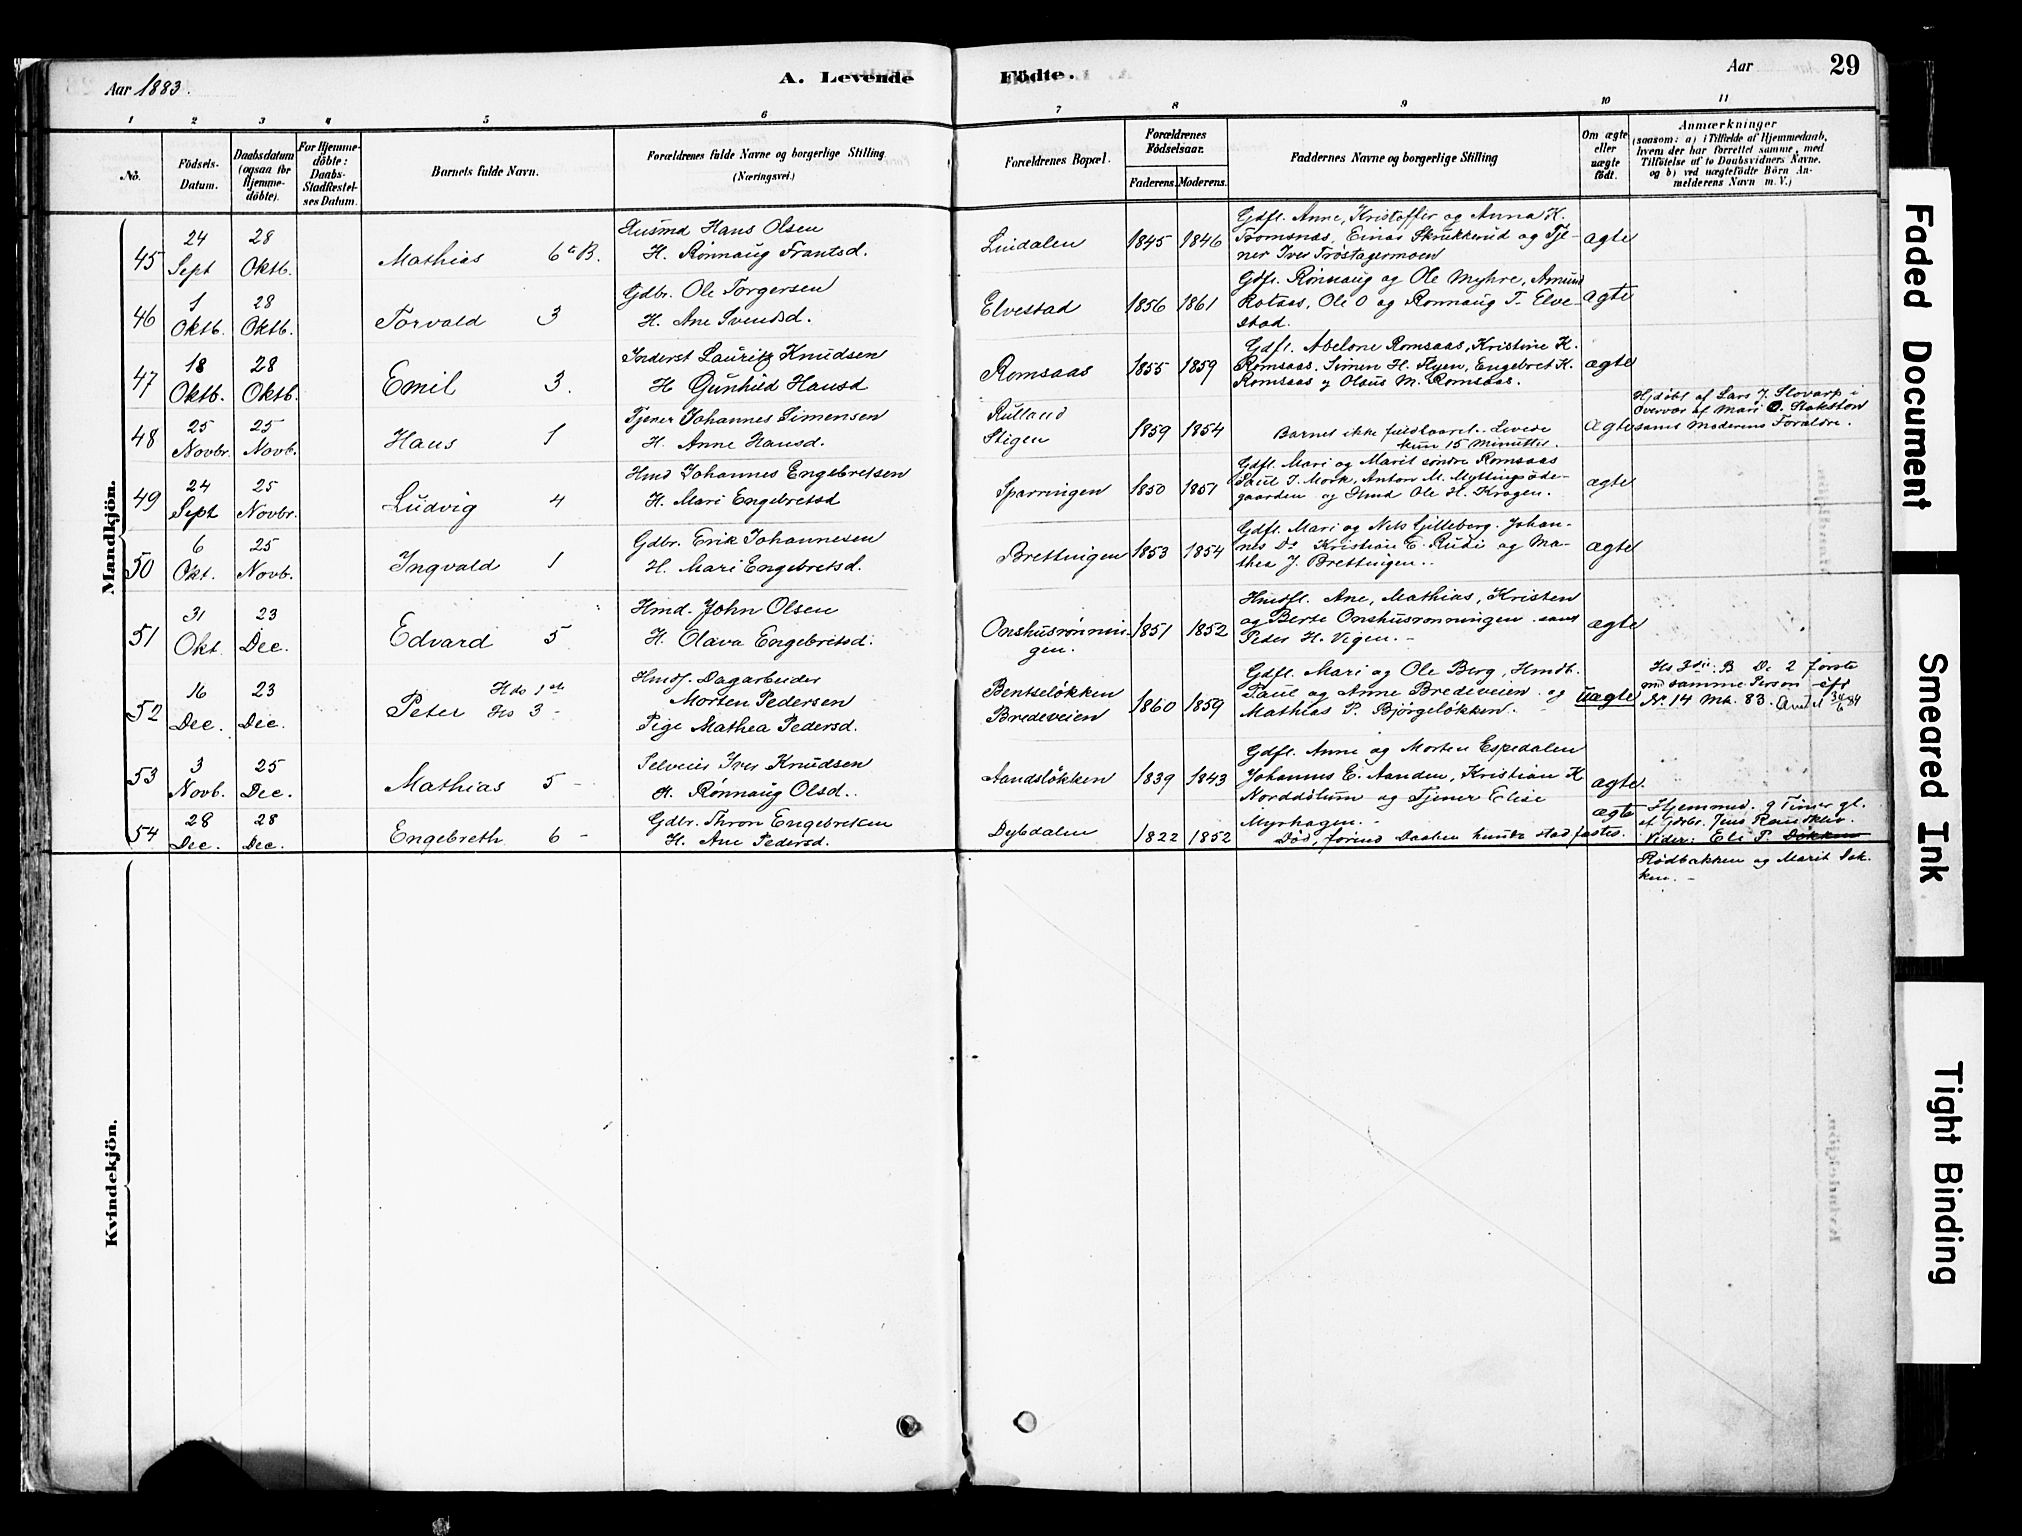 Aar 1883.
A. Levende
Födte.
Aar
29
1 2 3 4 5 6 7 8 9 10 11
No.
Födsels-Datum.
Daabsdatum (ogsaa for Hjemme-döbte).
For Hjemme-döbte: Daabs-Stadfæstel-ses Datum.
Barnets fulde Navn.
Forældrenes fulde Navne og borgerlige Stilling (Næringsvei.)
Forældrenes Bopæl.
Forældrenes Födselsaar.
Faderens. Moderens.
Faddernes Navne og borgerlige Stilling
Om ægte eller uægte födt.
Anmærkninger
(saasom: a) i Tilfælde af Hjemmedaab,
hvem der har forrettet samme, med
Tilföielse af to Daabsvidners Navne.
og b) ved uægtefödte Börn An-
melderens Navn m. V.)
Mandkjön.
45 24 Sept 28 Oktb. Mathias 6te B.
Husmd Hans Olsen
H. Rønnaug Frantsd.
Lindalen 1845 1846
Gdfl. Anne, Kristoffer og Anna K.
Tromsnæs, Einar Skrukkerud og Tje-
ner Iver Trøstagermoen
ægte
46 1 Oktb. 28 Oktb. Torvald 3
Gdbr. Ole Torgersen
H. Ane Svendsd.
Elvestad 1856 1861
Gdfl. Rønnaug og Ole Myhre, Amund
Kotaas, Ole O og Rønnaug T. Elve-
stad.
ægte
47 18 Oktb. 28 Oktb. Emil 3.
Inderst Lauritz Knudsen
H Gunhild Hansd
Romsaas 1855 1859
Gdfl. Abelone Romsaas, Kristine K.
Romsaas, Simen H. Flyen, Engebret K.
Romsaas og Olaus M. Romsaas.
ægte
48 25 Novbr. 25 Novb. Hans 1
Tjener Johannes Simensen
H. Anne Hansd.
Rulland
Stigen
1859 1854
Barnet ikke fuldbaaret. Levede
kun 15 Minutter.
ægte
Hjdøbt af Lars J. Slovarp i
Overvær af Mari O. Stakston
samt Moderens Forældre.
49 24 Sept 25 Novbr. Ludvig 4
Hmd Johannes Engebretsen
H. Mari Engebretsd
Sparningen 1850 1851
Gdfl. Mari og Marit søndre Romsaas
Paul J. Mork, Anton M. Myttingsøde-
gaarden og Hmd Ole H. Krogen.
ægte
50 6 Okt. 25 Novb. Ingvald 1
Gdbr. Erik Johannesen
H. Mari Engebretsd.
Brettingen 1853 1854
Gdfl. Mari og Nils Gilleberg. Johan-
nes Do Kristian E. Rudi og Ma-
thea J. Brettingen.
ægte
51 31 Okt. 23 Dec. Edvard 5
Hmd. John Olsen
H. Olava Engebretsd.
Onshusrønnin-
gen.
1851 1852
Hmdfl. Ane, Mathias, Kristen
og Berte Onshusrønningen samt
Peter H. Vigen.
ægte
52 16 Dec. 23 Dec. Peter Hds 1ste Hs 3
Hmdf. Dagarbeider
Morten Pedersen
Pige Mathea Pedersd.
Bentseløkken
Bredeveien
1860 1859
Gdfl. Mari og Ole Berg, Hmdb.
Paul og Anne Bredeveien og
Mathias P. Bjørgeløkken.
uægte
Hs 3die B De 2 første
med samme Person cfr
No. 14 Mk. 83.
53 3 Novb. 25 Dec. Mathias 5
Selveier Iver Knudsen
H. Rønnaug Olsd.
Aandsløkken 1839 1843
Gdfl. Anne og Morten Espedalen
Johannes E. Aanden, Kristian K
Norddølum og Tjener Elise
Myrhagen.
ægte.
54 28 Dec. 28 Dec. Engebreth 6
Gdbr. Thron Engebretsen
H. Ane Pedersd.
Dybdalen 1822 1852
Død, førend Daaben kunde stadfæstes.
ægte
Hjemmed. 9 Timer gl.
af Gdbr. Jens Ramsklev.
Vidner: Eli P. Løkken
Rødbakken og Marit Løk-
ken.
Kvindekjön.
Faded Document
Smeared Ink
Tight Binding